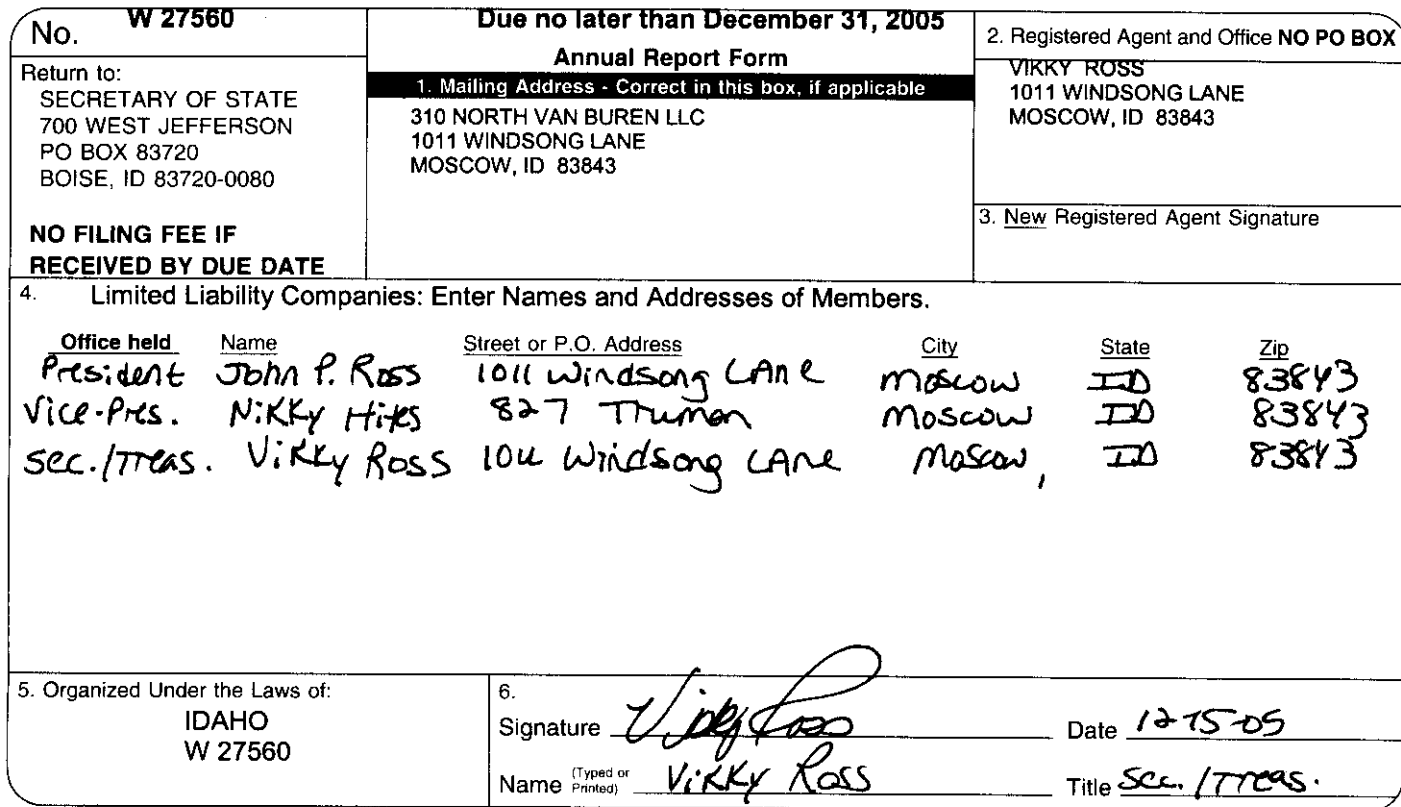 No. W 27560
Return to:
SECRETARY OF STATE
700 WEST JEFFERSON
PO BOX 83720
BOISE, ID 83720-0080
NO FILING FEE IF
RECEIVED BY DUE DATE
Due no later than December 31, 2005
Annual Report Form
1. Mailing Address - Correct in this box, if applicable
310 NORTH VAN BUREN LLC
1011 WINDSONG LANE
MOSCOW, ID 83843
2. Registered Agent and Office NO PO BOX
VIKKY ROSS
1011 WINDSONG LANE
MOSCOW, ID 83843
3. New Registered Agent Signature
4. Limited Liability Companies: Enter Names and Addresses of Members.
Office held Name Street or P.O. Address City State Zip
President John P. Ross 1011 Windsong LAne Moscow ID 83843
Vice-Pres. NiKKy 827 Truman Moscow ID 83843
Sec./Treas. ViKKy Ross 1011 Windsong LAne Moscow, ID 83843
5. Organized Under the Laws of:
IDAHO
W 27560
6.
Signature Vikky Ross Date 12-15-05
Name (Typed or Printed) ViKKy Ross Title Sec./Treas.